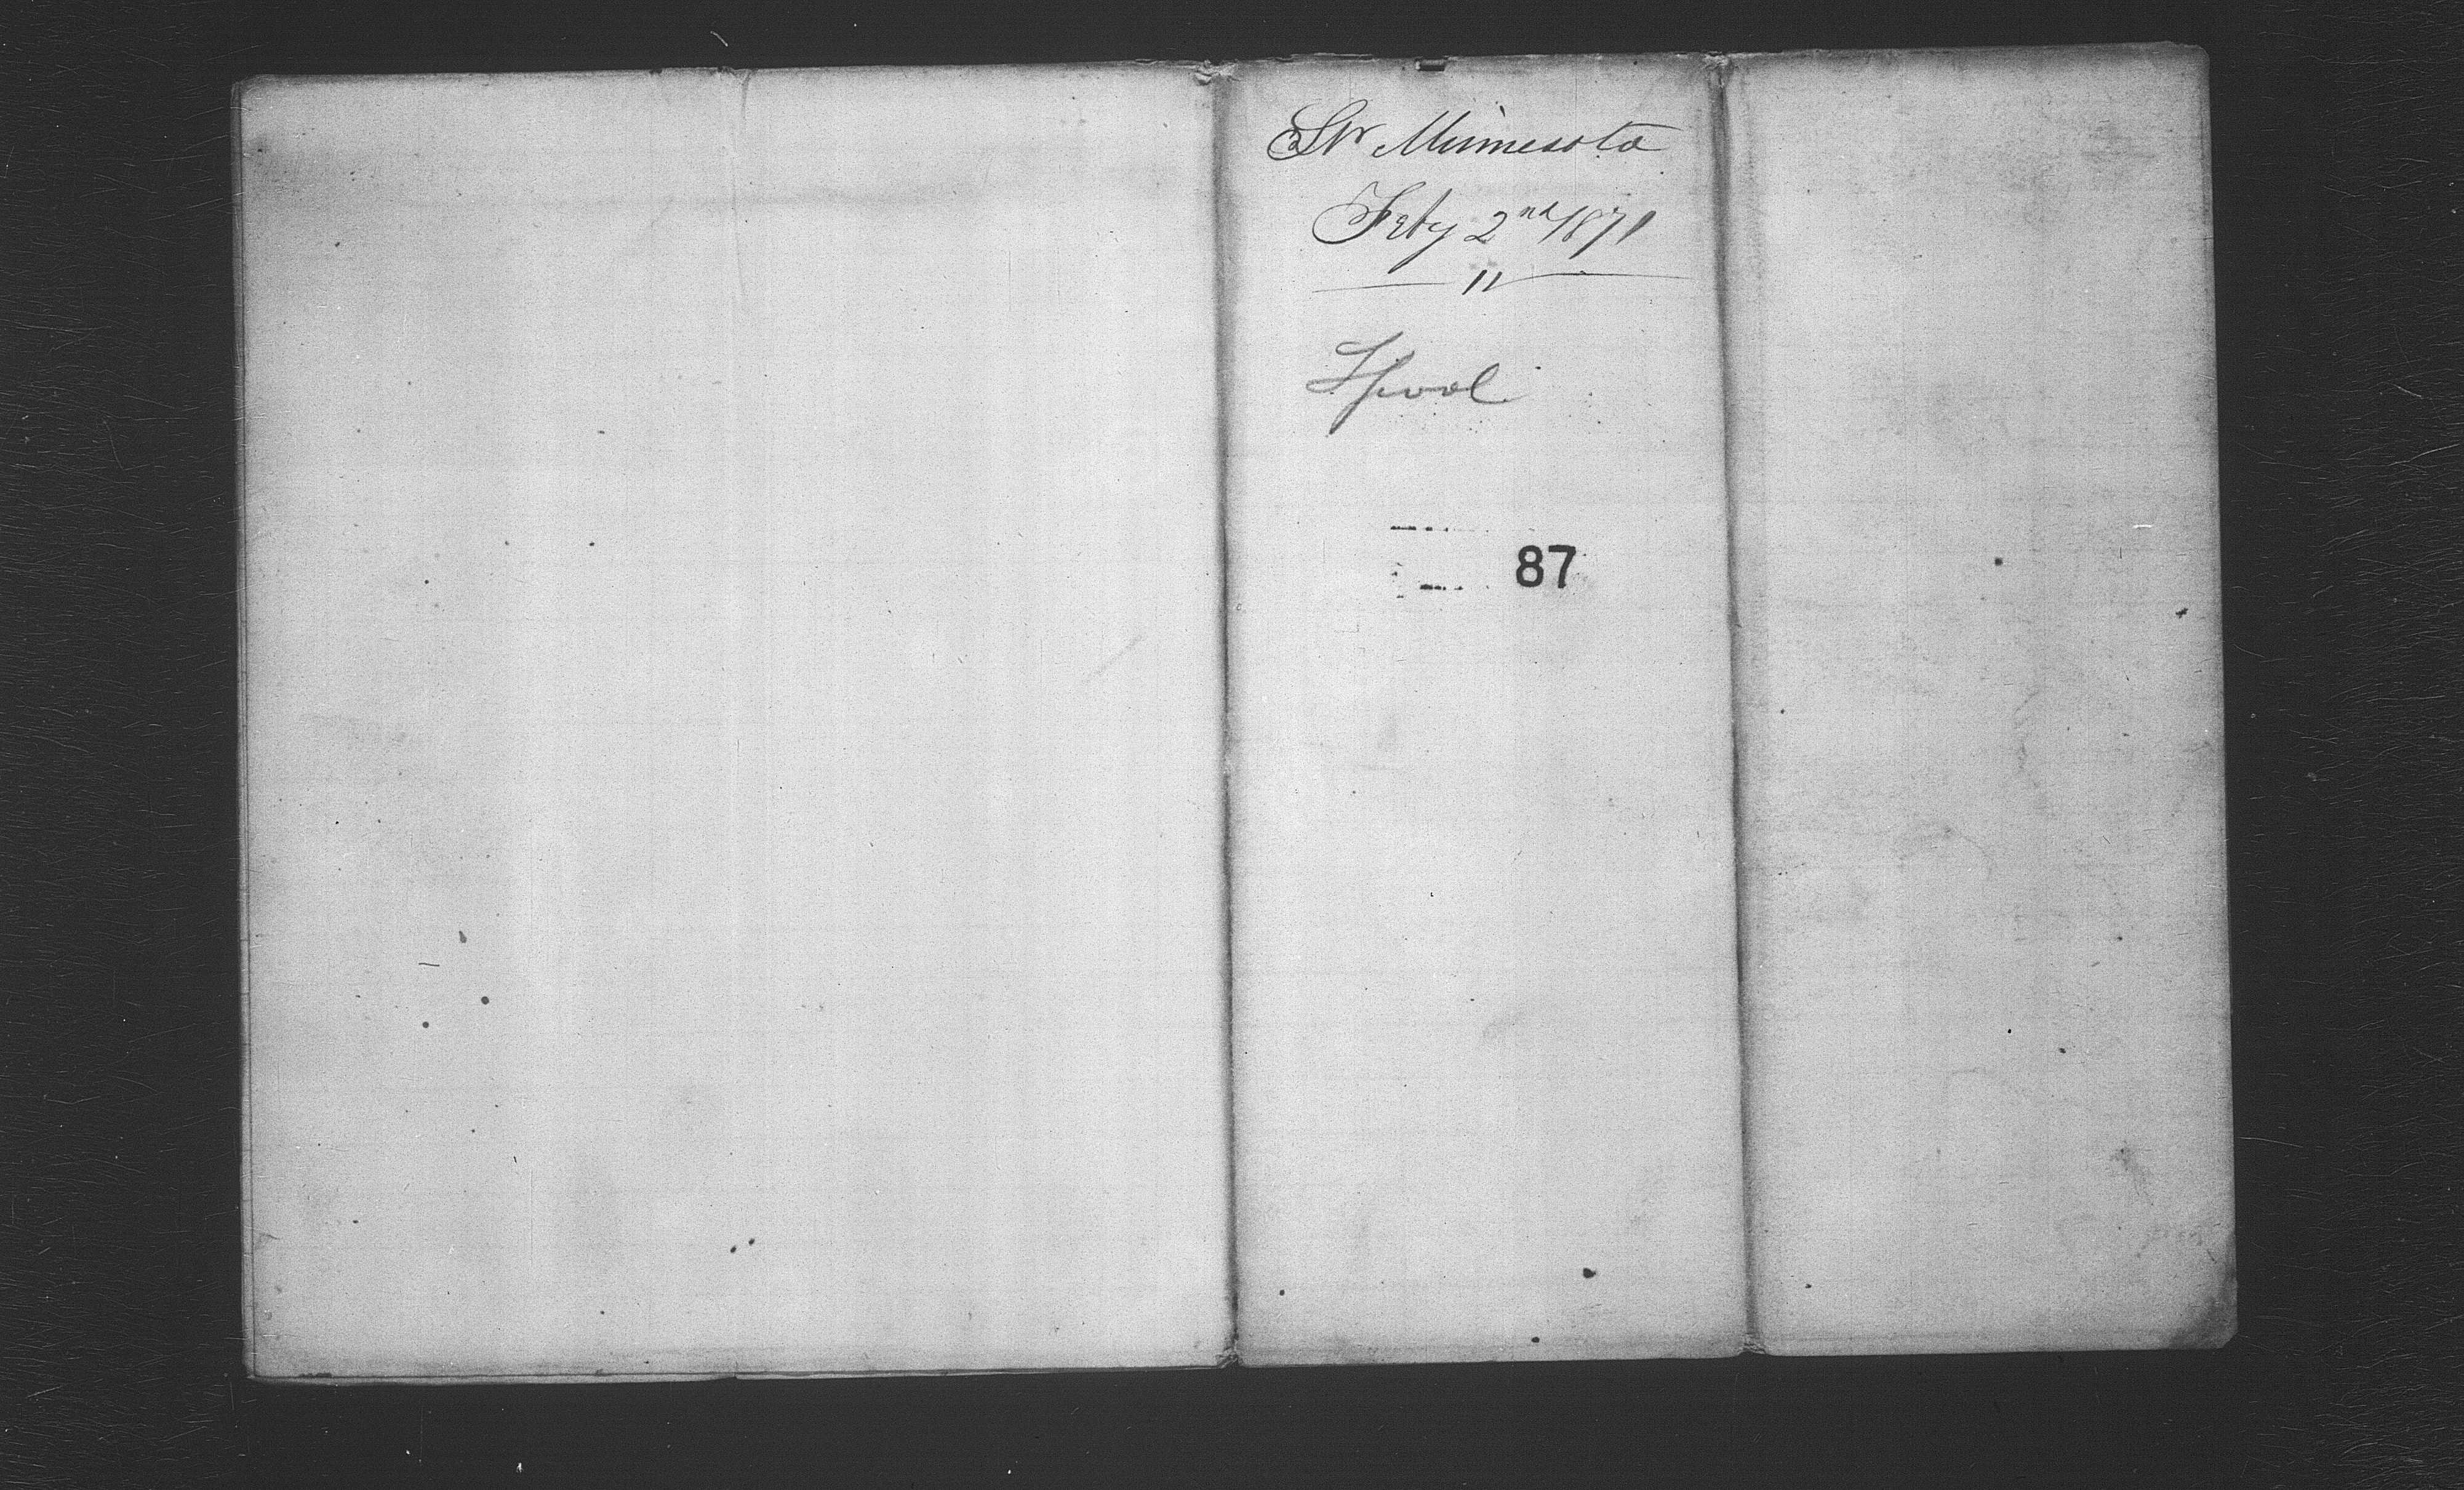 Str Minnesota
Feby 2nd 1871
11
Lpool
87